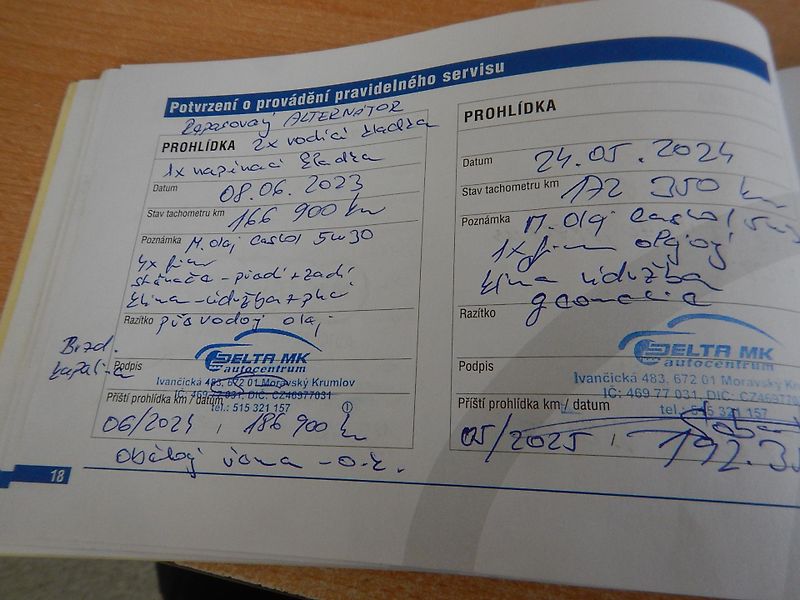 Potvrzení o provádění pravidelného servisu
Repasovaný ALTERNÁTOR
PROHLÍDKA 2x vodící kladka
1x napínací kladka
Datum 08.06.2023
Stav tachometru km 166 900 km
Poznámka M. olej castrol 5w30
4x filtr
stěrače - přední + zadní
klima - údržba + plnění
Razítko převodový olej
Brzd.
kapalina
DELTA MK
autocentrum
Podpis
Ivančická 483, 672 01 Moravský Krumlov
IČ: 469 77 031, DIČ: CZ46977031
tel.: 515 321 157
Příští prohlídka km / datum
06/2024 , 186 900 km
- o.k.
18
PROHLÍDKA
Datum 24.05.2024
Stav tachometru km 172 350 km
Poznámka M. olej castrol 5w3
1x filtr olejový
klima údržba
geometrie
Razítko
DELTA MK
autocentrum
Podpis
Ivančická 483, 672 01 Moravský Krumlov
IČ: 469 77 031, DIČ: CZ4697703
tel.: 515 321 157
Příští prohlídka km / datum
05/2025 , 192.35